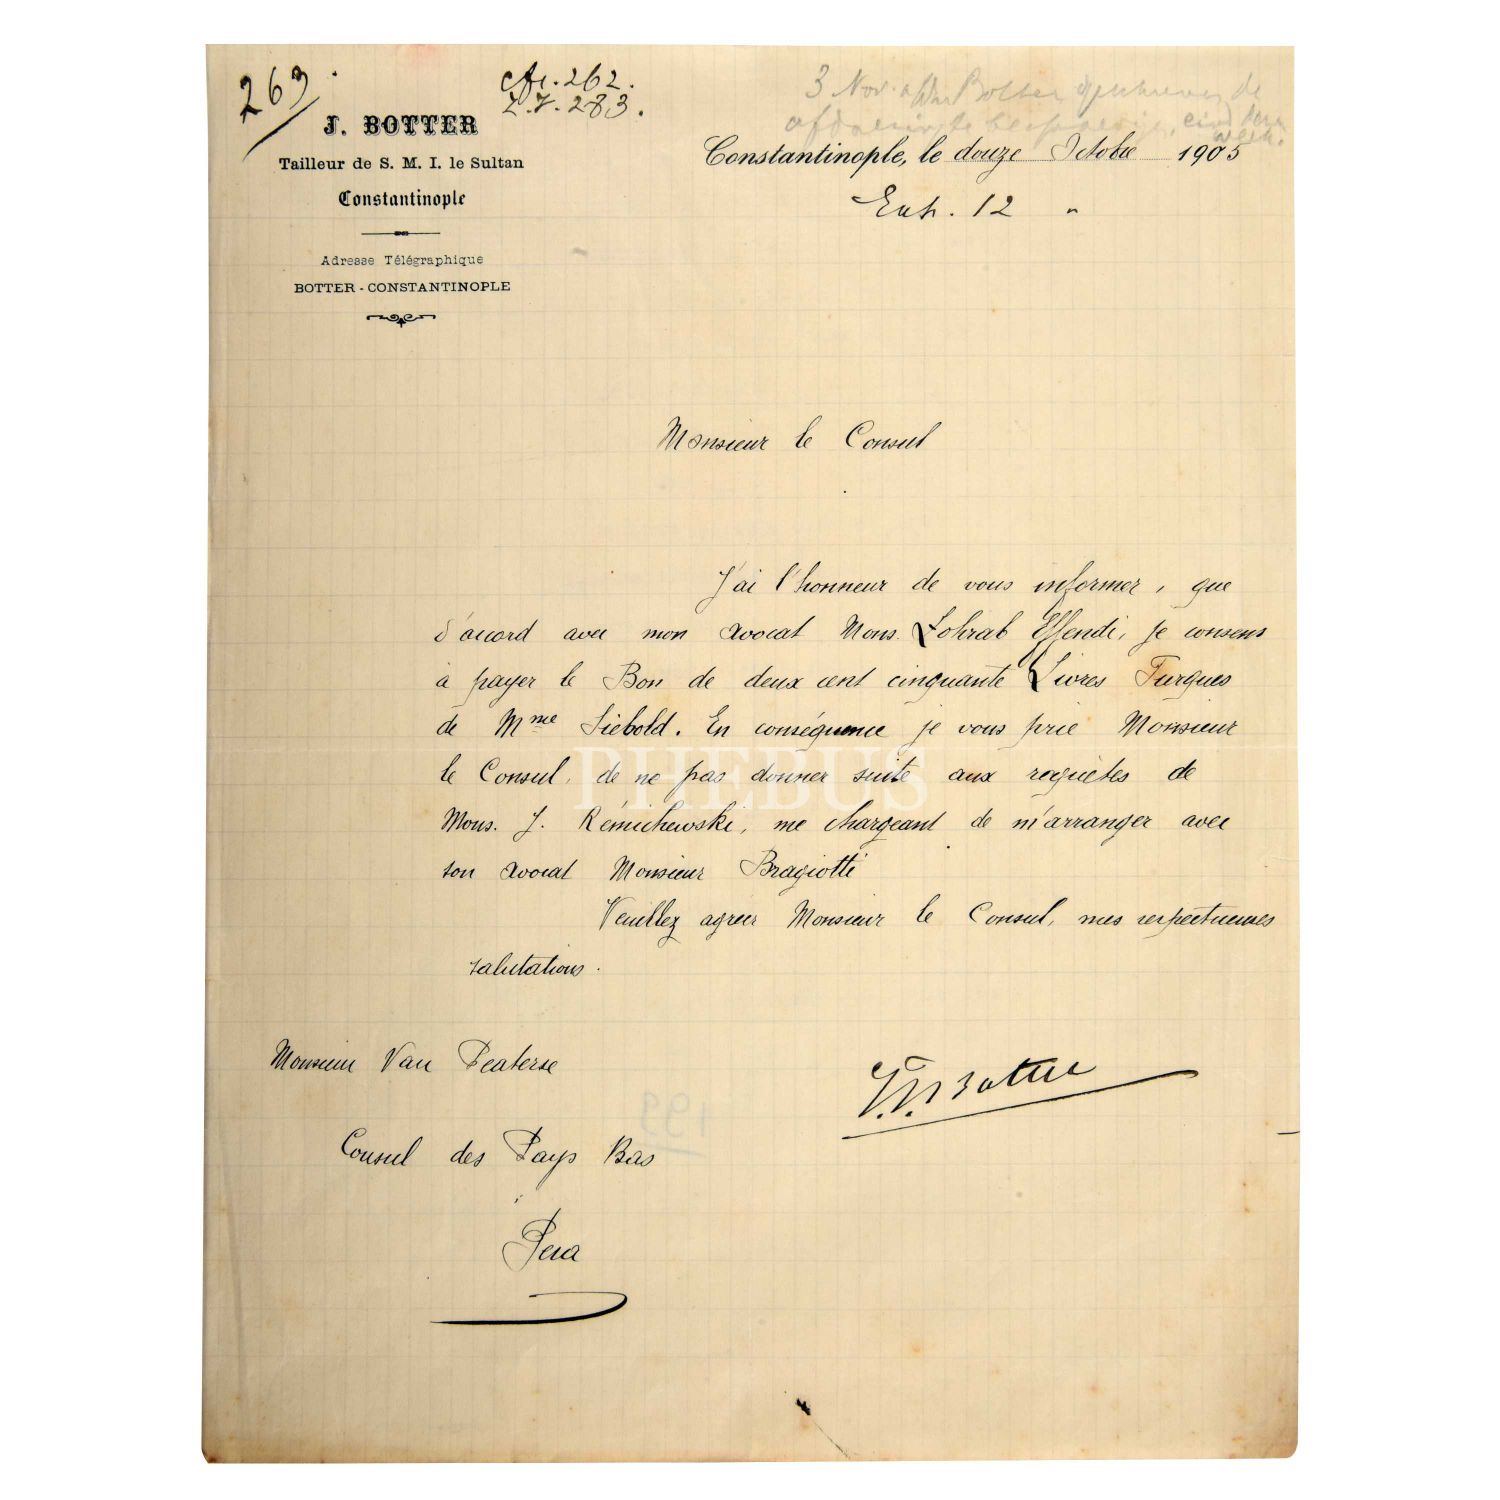 263
262.
283.
J. BOTTER
Tailleur de S. M. I. le Sultan
Constantinople
Adresse Télégraphique
BOTTER - CONSTANTINOPLE
3 Nov. Botter de
Constantinople, le douze Octobre 1905
12 "
Monsieur le Consul
J'ai l'honneur de vous informer, que
d'accord avec mon avocat Mons. Sohrab Effendi, je consens
à payer le Bon de deux cent cinquante Livres Turques
de Mme Siebold. En conséquence je vous prie Monsieur
le Consul, de ne pas donner suite aux requètes de
Mons. J. Rémichewski, me chargeant de m'arranger avec
son avocat Monsieur Bragiotti
Veuillez agréer Monsieur le Consul, mes respectueuses
salutations.
Monsieur Van Peaterse
J. Botter
Consul des Pays Bas
Pera
PHEBUS